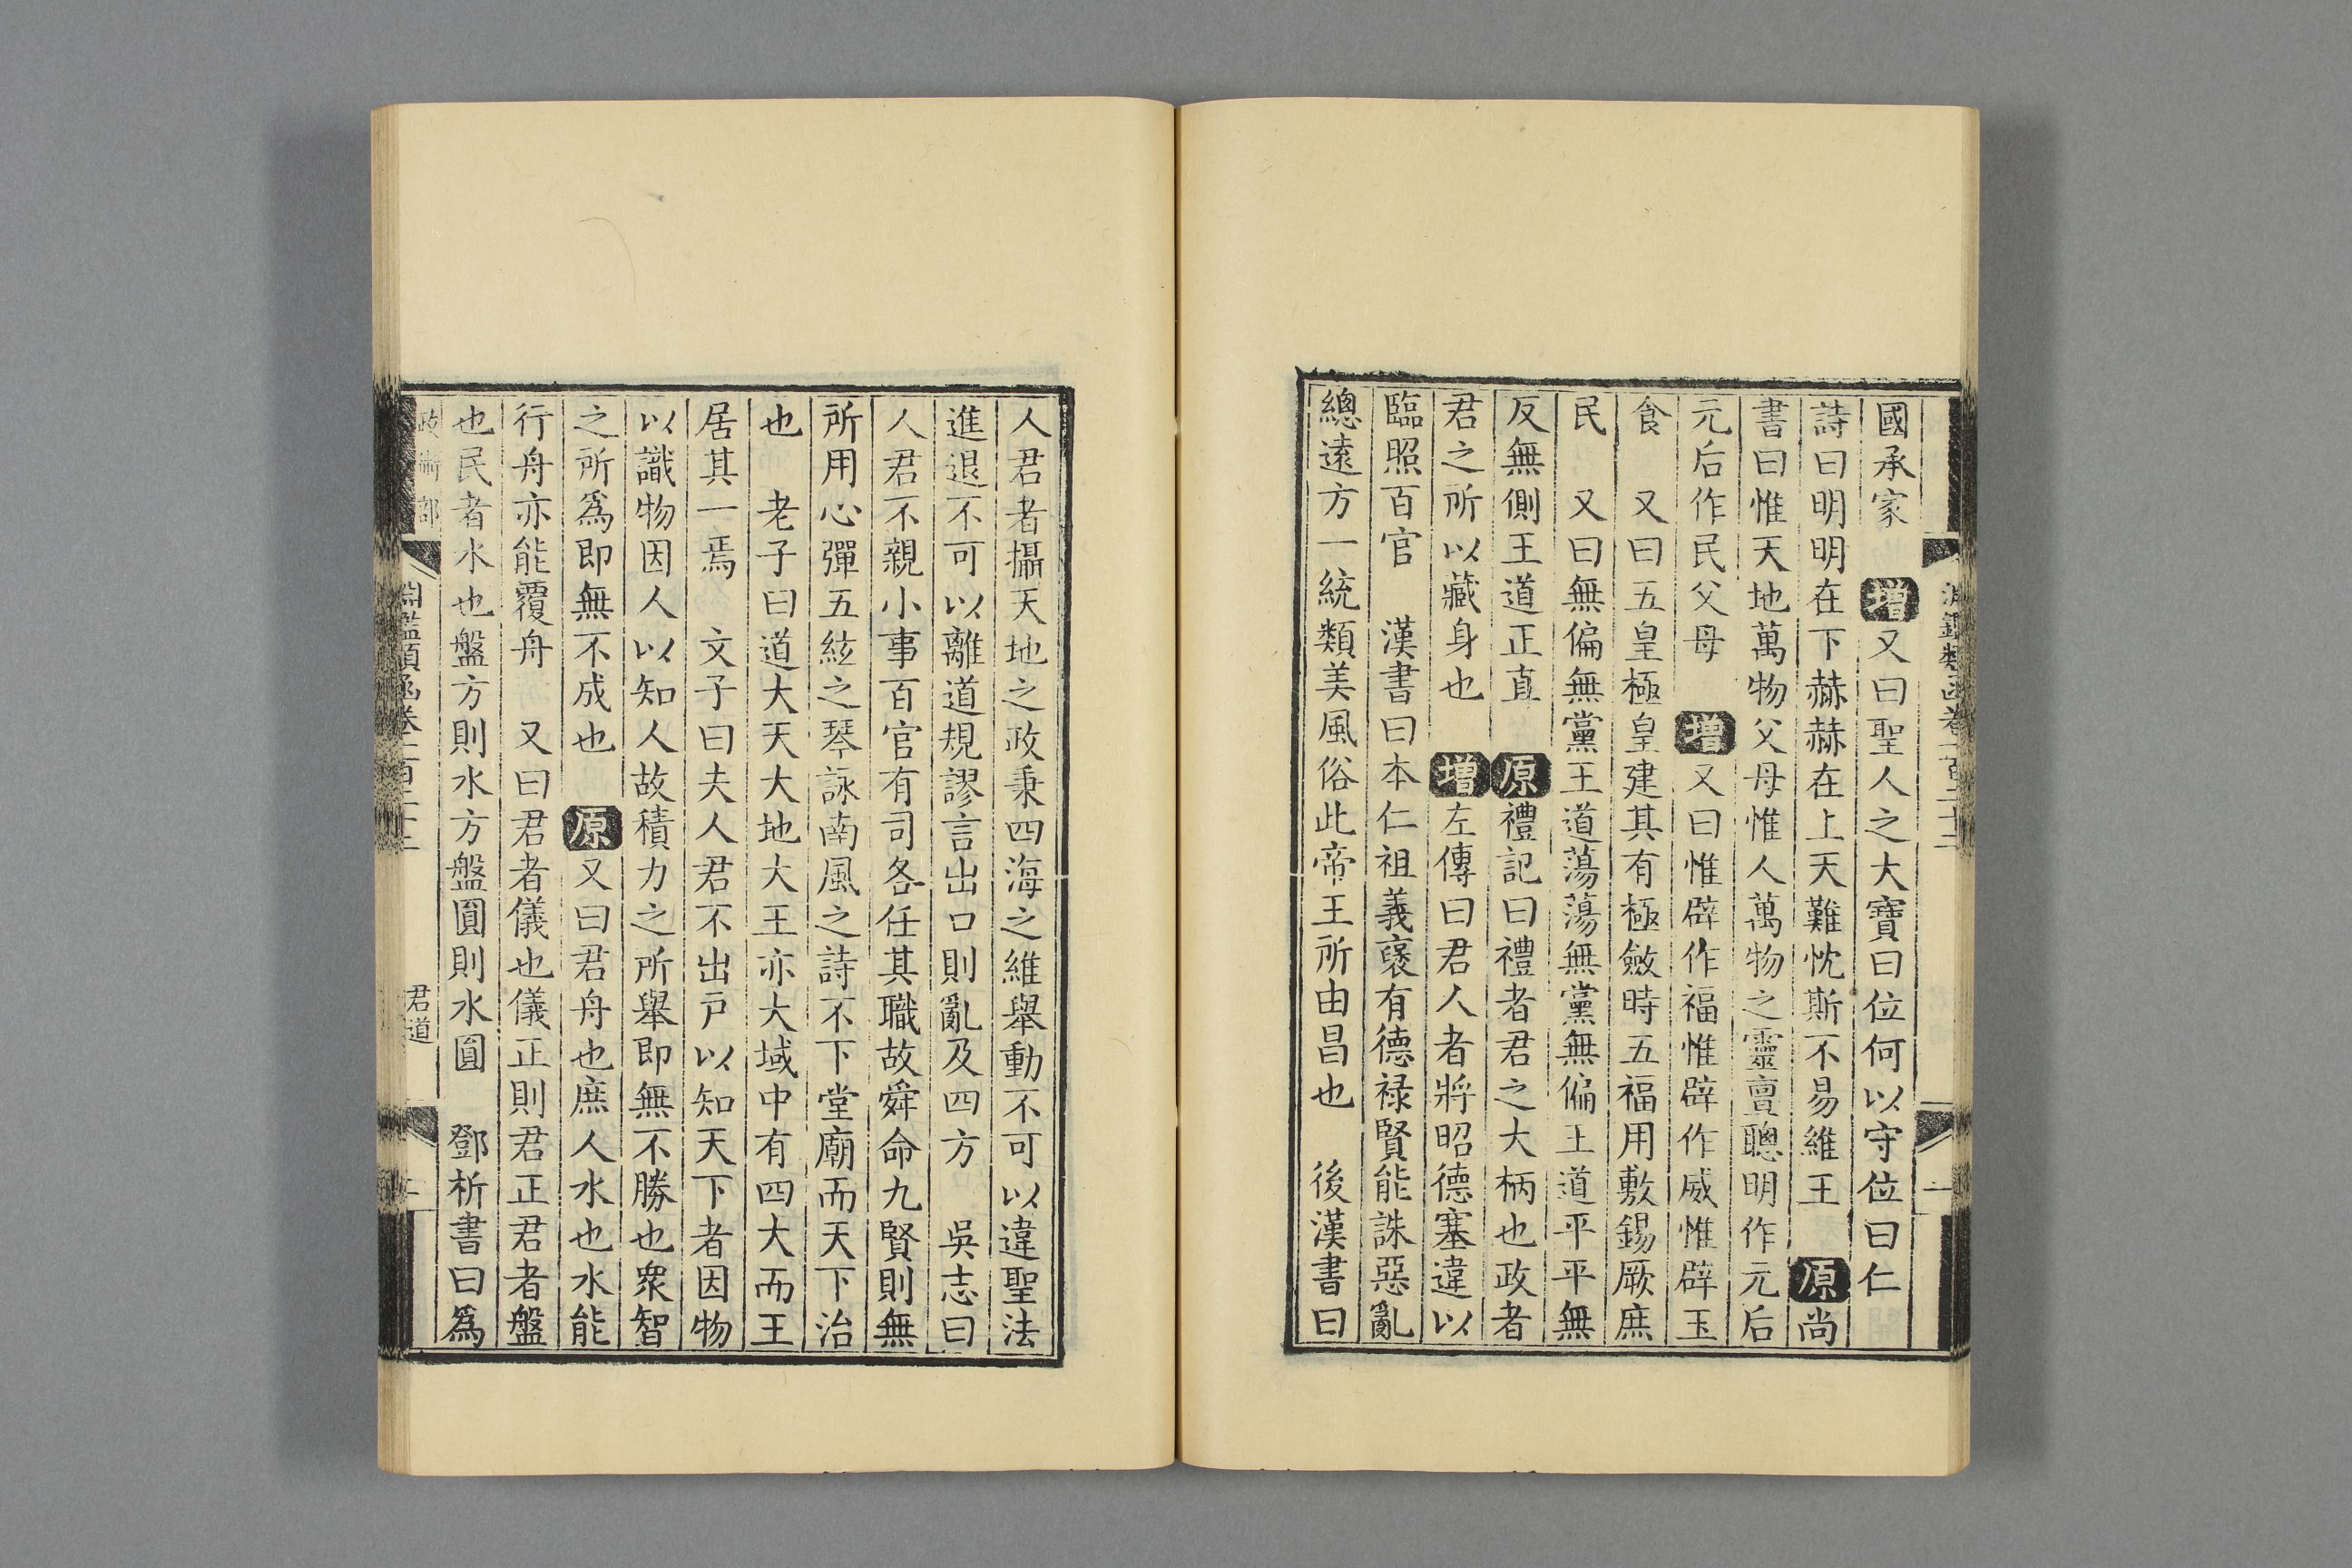 國承家 增又曰聖人之大寶曰位何以守位曰仁
詩曰明明在下赫赫在上天難忱斯不易維王 原尚
書曰惟天地萬物父母惟人萬物之靈亶聰明作元后
元后作民父母 增又曰惟辟作福惟辟作威惟辟玉
食 又曰五皇極皇建其有極斂時五福用敷錫厥庶
民 又曰無偏無黨王道蕩蕩無黨無偏王道平平無
反無側王道正直 原禮記曰禮者君之大柄也政者
君之所以藏身也 增左傳曰君人者將昭德塞違以
臨照百官 漢書曰本仁祖義褒有德禄賢能誅惡亂
總遠方一統類美風俗此帝王所由昌也 後漢書曰
人君者攝天地之政秉四海之維舉動不可以違聖法
進退不可以離道規謬言出口則亂及四方 吳志曰
人君不親小事百官有司各任其職故舜命九賢則無
所用心彈五絃之琴詠南風之詩不下堂廟而天下治
也 老子曰道大天大地大王亦大域中有四大而王
居其一焉 文子曰夫人君不出戸以知天下者因物
以識物因人以知人故積力之所舉即無不勝也衆智
之所爲即無不成也 原又曰君舟也庶人水也水能
行舟亦能覆舟 又曰君者儀也儀正則君正君者盤
也民者水也盤方則水方盤圓則水圓 鄧析書曰爲
政術部
淵鑑類函卷一百二十二
君道